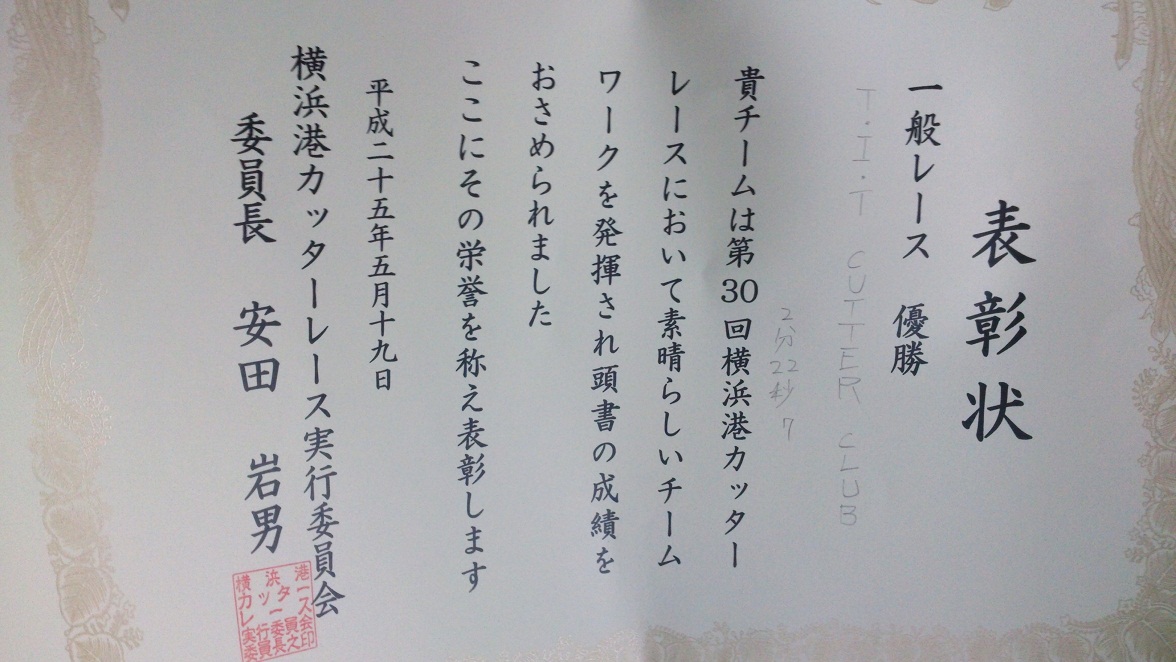 表彰状
一般レース 優勝
T.I.T CUTTER CLUB
2分22秒7
貴チームは第30回横浜港カッター
レースにおいて素晴らしいチーム
ワークを発揮され頭書の成績を
おさめられました
ここにその栄誉を称え表彰します
平成二十五年五月十九日
横浜港カッターレース実行委員会
委員長 安田 岩男
横浜港
カッターレース
実行委員会
委員長之印